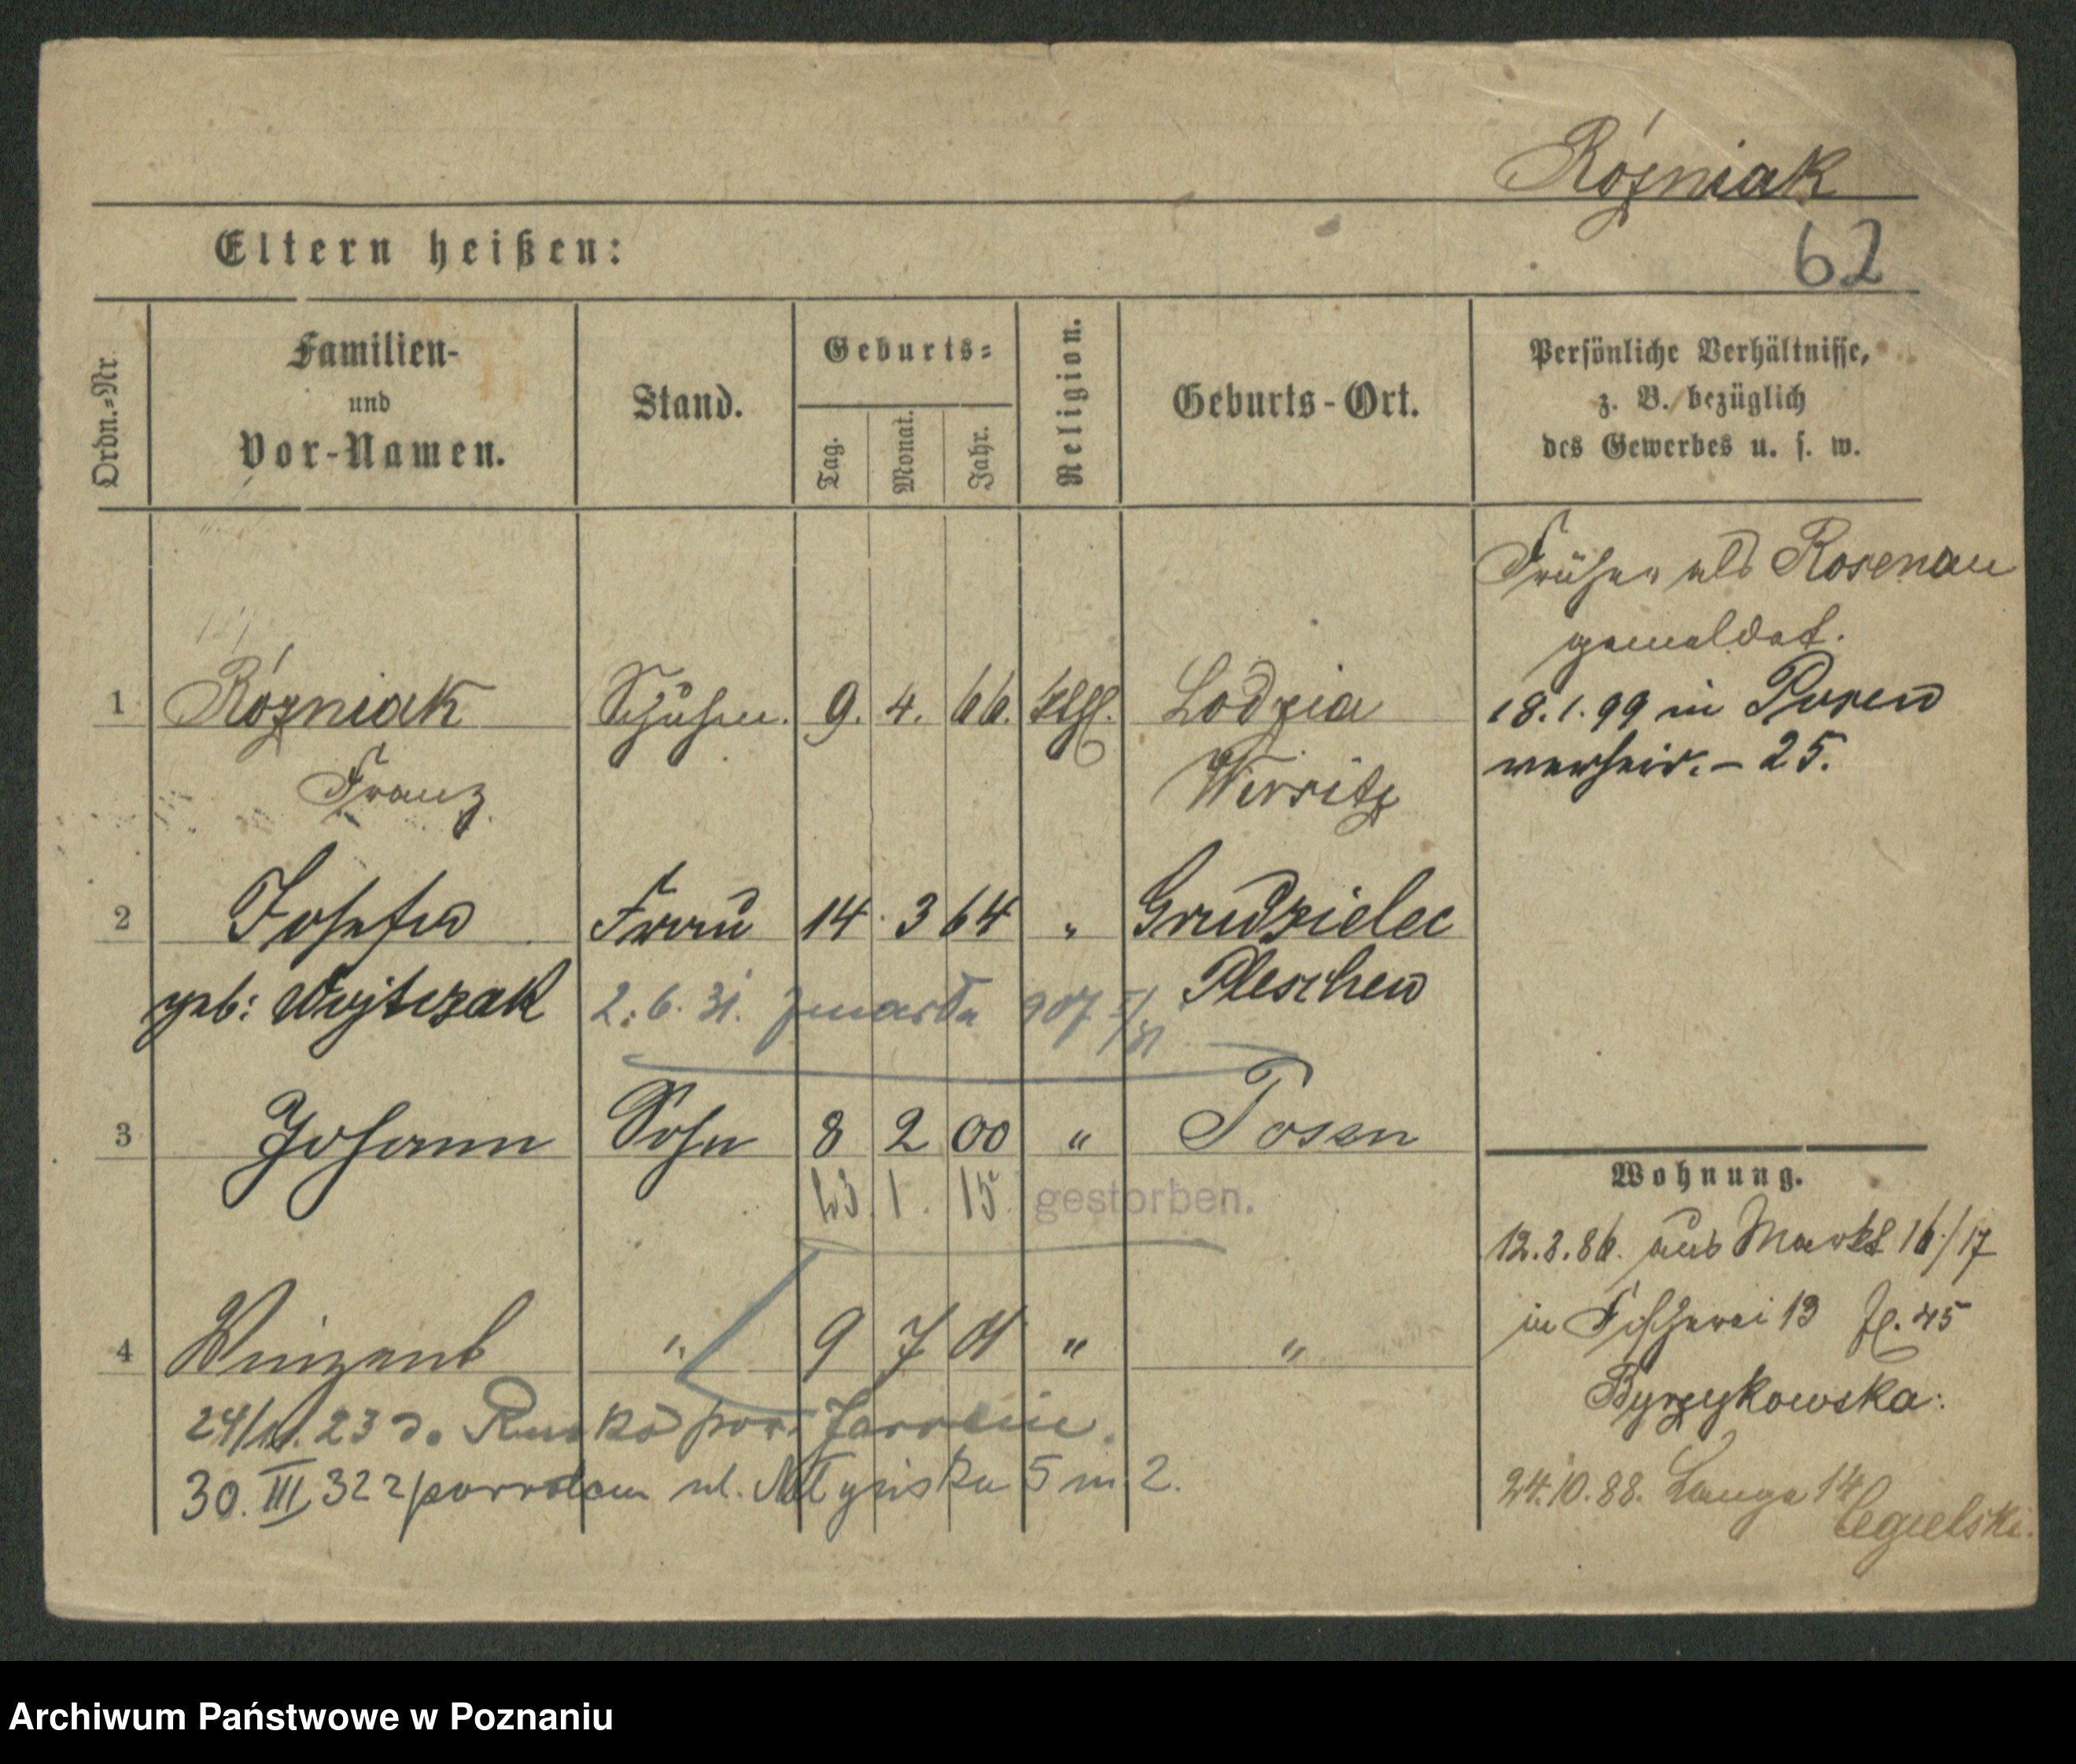 Róźniak
62
Eltern heißen:
Ordn.=Nr.
Familien-
und
Vor-Namen.
Stand.
Geburts=
Tag.
Monat.
Jahr.
Religion.
Geburts-Ort.
Persönliche Verhältnisse,
z. B. bezüglich
des Gewerbes u. s. w.
Früher als Rosenau
gemeldet.
1 Róźniak 9. 4. 66. Lodzia
Franz Wirsitz
18.1.99 in Posen
verheir. – 25.
2 Josefa Frau 14. 3 64 " Grudzielec
geb: Wojtczak Pleschen
2.6.31. zmarła 907
3 Johann Sohn 8 2 00 " Posen
23. 1. 15. gestorben.
4 Vinzent " 9 7 01 " "
24/11. 23 do Rusko pow. Jarocin.
30. III 32 z powrotem ul. Młyńska 5 m. 2.
Wohnung.
12.3.86. aus Markt 16/17
in Fischerei 13
Byrzykowska.
24.10.88. Lange 14
Cegielski.
Archiwum Państwowe w Poznaniu